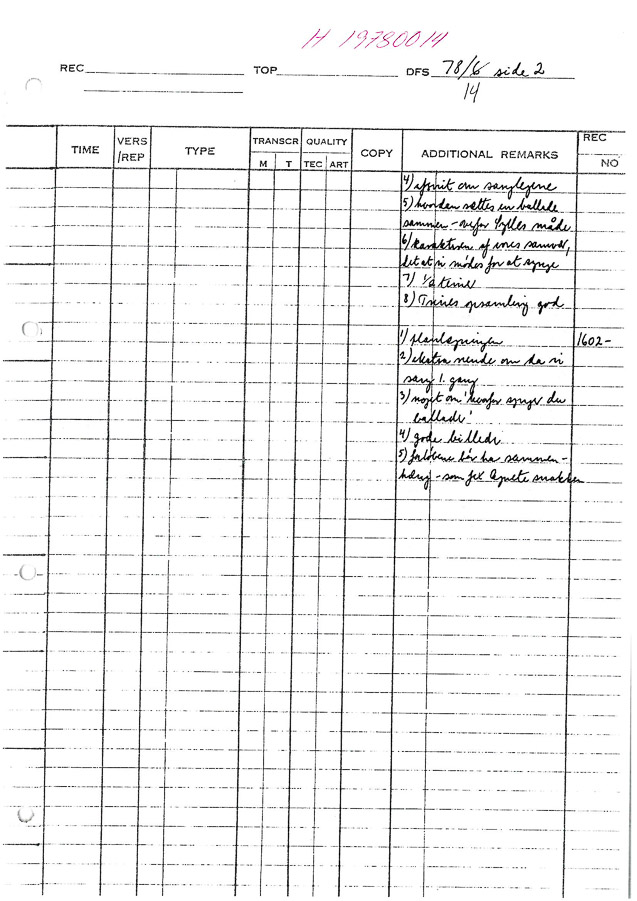 H 19780014
REC TOP DFS 78/6 side 2
14
TIME VERS /REP TYPE TRANSCR M T QUALITY TEC ART COPY ADDITIONAL REMARKS REC NO
4) afsnit om sanglegene
5) hvordan sættes en ballade
sammen - måde
6) karakteren af vores samvær,
det at vi mødes for at synge
7) 1/2 time
8) Trines opsamling god
1) planlægningen 1602-
2) ekstra om da vi
sang 1. gang
3) noget om 'hvorfor synger du
ballade'
4) gode billeder
5) forløbene bør ha sammen-
hæng - som fx Agnete snakken